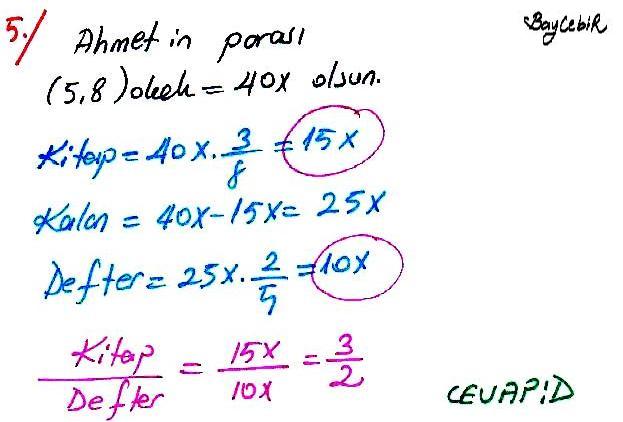 5./ Ahmet in parası
BayCebiR
(5,8)okek = 40x olsun.
Kitap = 40x . 3/8 = 15x
Kalan = 40x - 15x = 25x
Defter = 25x . 2/5 = 10x
Kitap/Defter = 15x/10x = 3/2
CEVAP:D